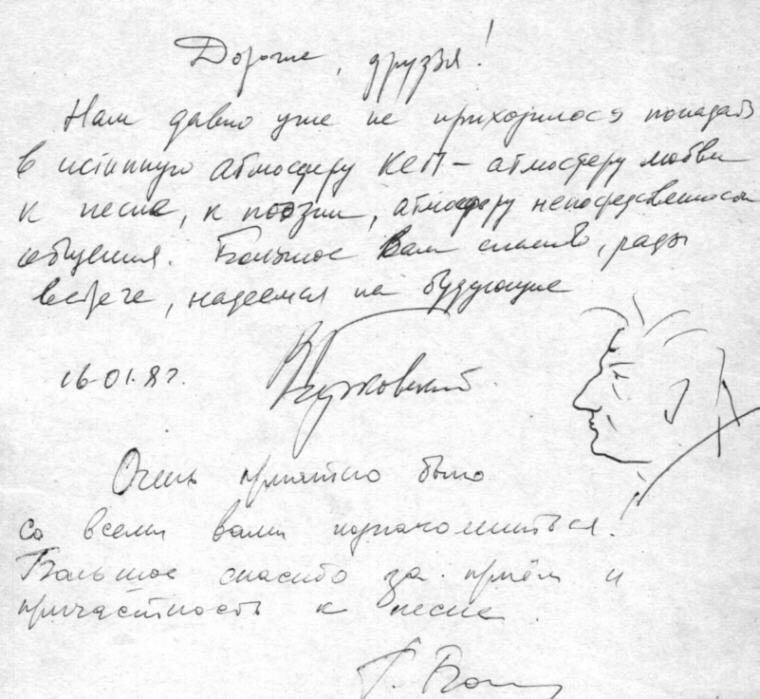 Дорогие, друзья!
Нам давно уже не приходилось попадать
в истинную атмосферу КСП – атмосферу любви
к песне, к поэзии, атмосферу непосредственности
общения. Большое Вам спасибо, рады
встрече, надеемся на будующие
16.01.87.
Очень приятно было
со всеми вами познакомиться!
Большое спасибо за приём и
причастность к песне